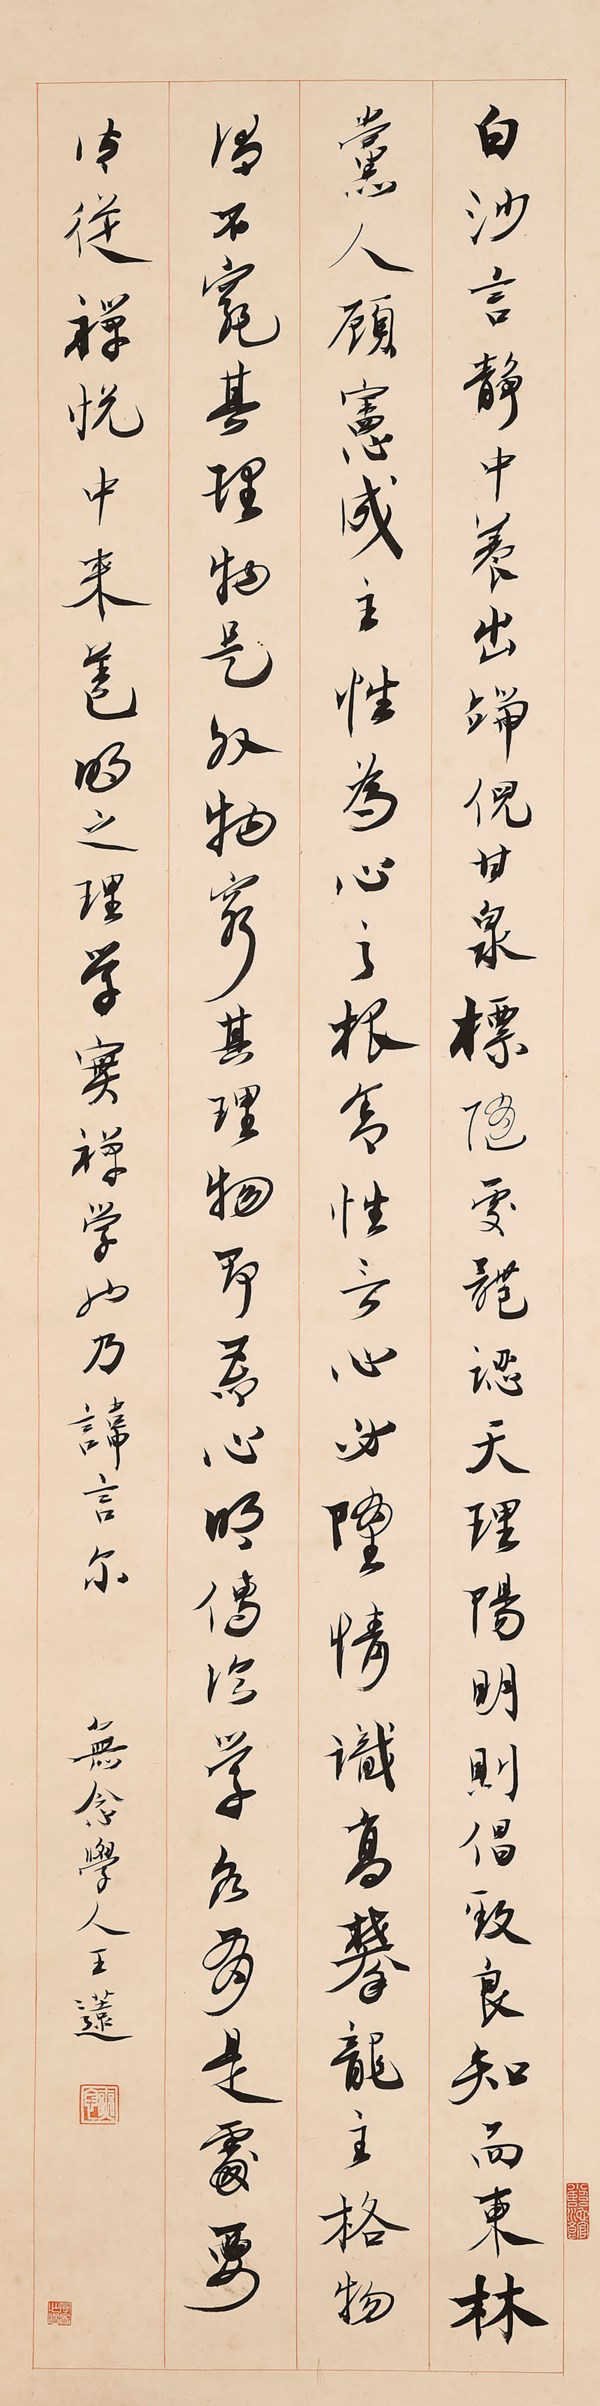 白沙言靜中養出端倪甘泉標隨處體認天理陽明則倡致良知而東林
黨人顧憲成主性為心之根舍性言心必墮情識高攀龍主格物
謂不窮其理物是外物窮其理物即為心明儒論學各有是處要
皆從禪悅中來蓋明之理學實禪學也乃諱言爾
無念學人王蘧